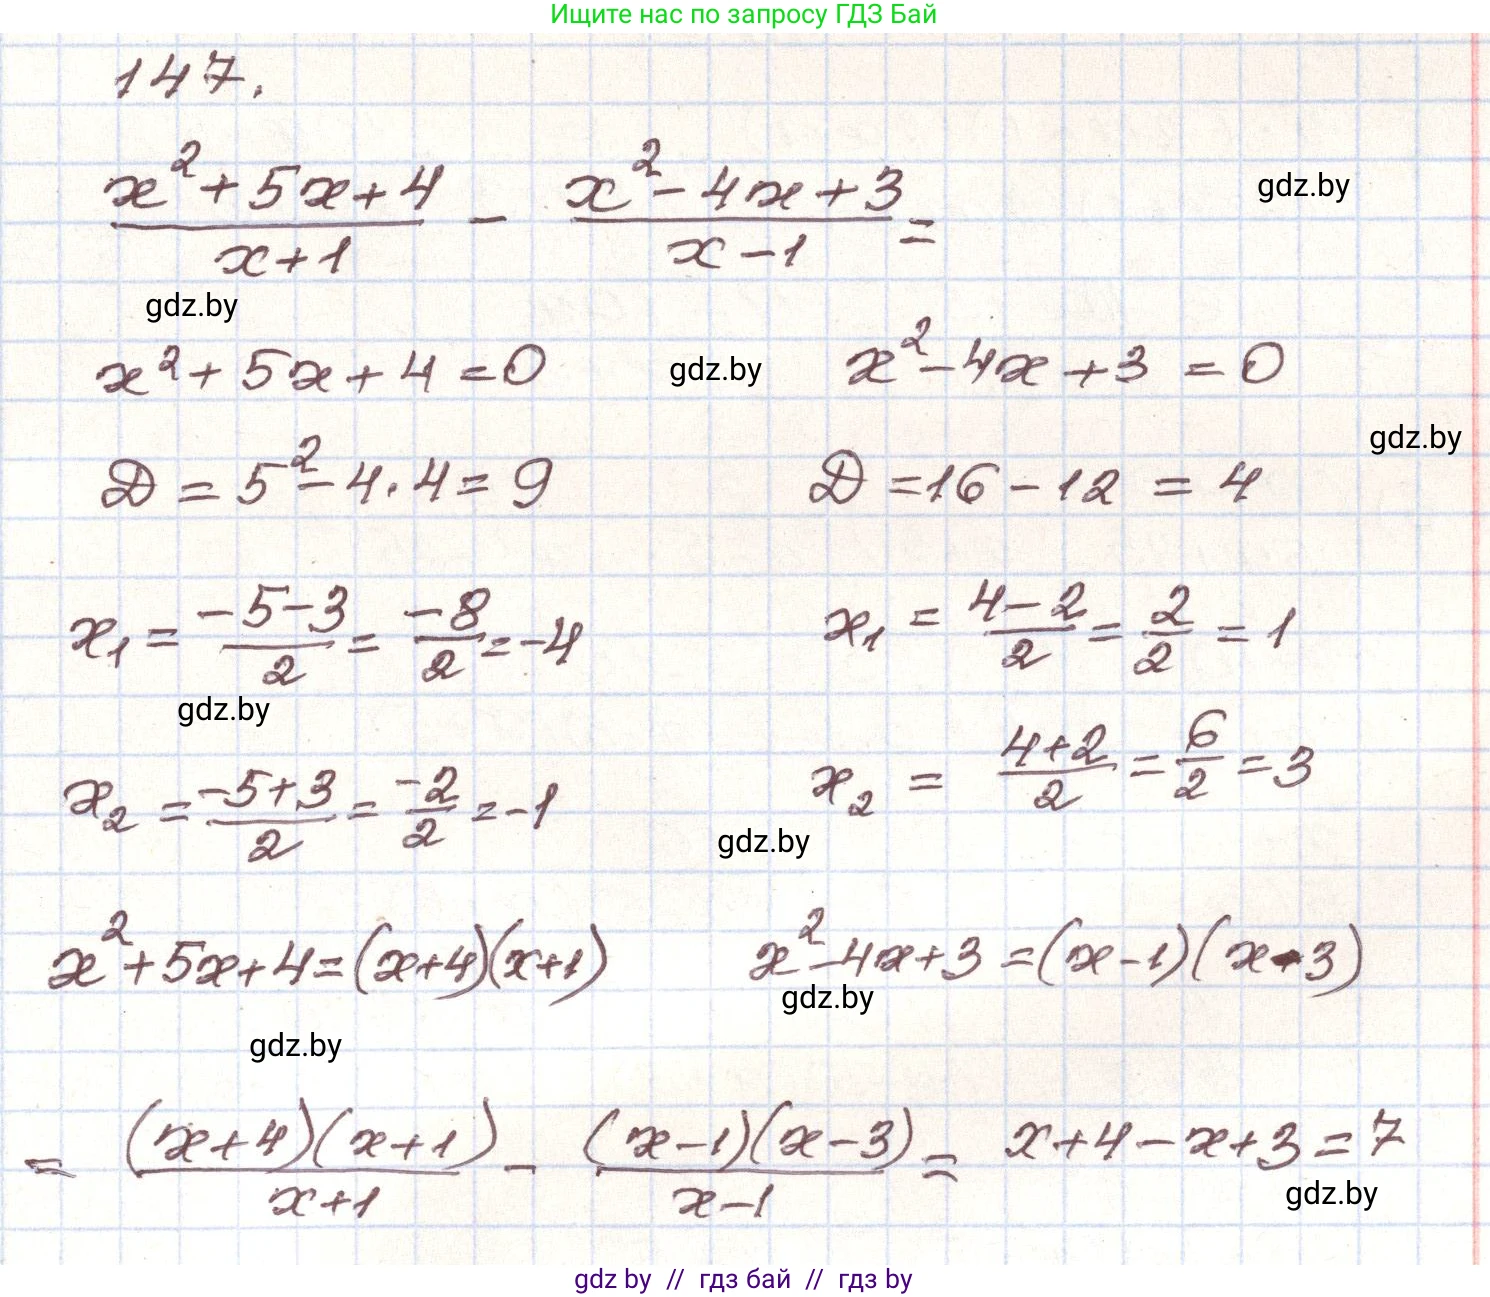 Ищите нас по запросу ГДЗ Бай
147.
(x² + 5x + 4)/(x + 1) − (x² − 4x + 3)/(x − 1) =
gdz.by
gdz.by
x² + 5x + 4 = 0
gdz.by
x² − 4x + 3 = 0
gdz.by
Д = 5² − 4 · 4 = 9
Д = 16 − 12 = 4
x₁ = (−5−3)/2 = −8/2 = −4
x₁ = (4−2)/2 = 2/2 = 1
gdz.by
x₂ = (−5+3)/2 = −2/2 = −1
x₂ = (4+2)/2 = 6/2 = 3
gdz.by
x² + 5x + 4 = (x+4)(x+1)
x² − 4x + 3 = (x−1)(x−3)
gdz.by
gdz.by
= (x+4)(x+1)/(x+1) − (x−1)(x−3)/(x−1) = x + 4 − x + 3 = 7
gdz.by
gdz by // гдз бай // гдз by